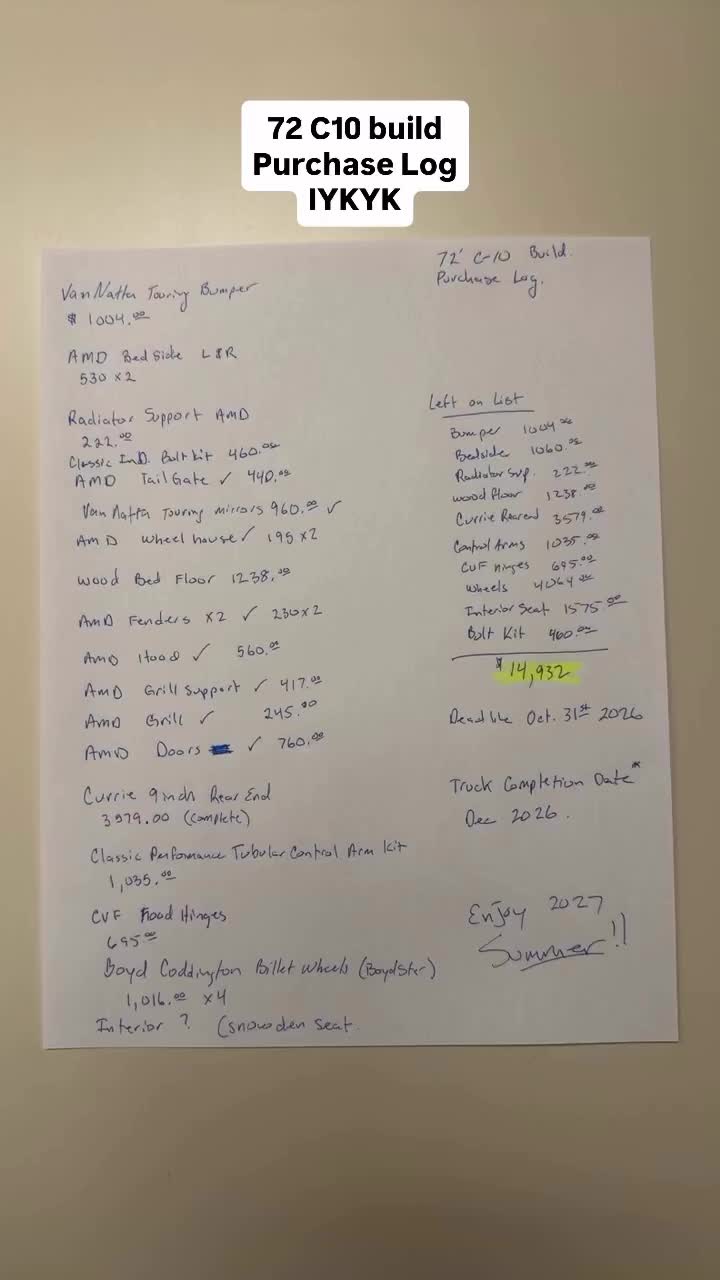 72 C10 build
Purchase Log
IYKYK
72' C-10 Build.
Purchase Log.
VanNatta Touring Bumper
$ 1004.00
AMD Bed Side L&R
530 x2
Radiator Support AMD
222.00
Classic InD. Bolt Kit 460.00
AMD TailGate ✓ 440.00
Van Natta Touring mirrors 960.00 ✓
AMD wheel house ✓ 195 x2
Wood Bed Floor 1238.00
AMD Fenders x2 ✓ 230x2
AMD Hood ✓ 560.00
AMD Grill Support ✓ 417.00
AMD Grill ✓ 245.00
AMD Doors ✓ 760.00
Currie 9inch Rear End
3579.00 (complete)
Classic Performance Tubular Control Arm Kit
1,035.00
CVF Hood Hinges
695.00
Boyd Coddington Billet Wheels (Boydster)
1,016.00 x4
Interior ? (snowden seat
Left on List
Bumper 1004.00
Bedside 1060.00
Radiator Sup. 222.00
Wood Floor 1238.00
Currie Rearend 3579.00
Control Arms 1035.00
CVF Hinges 695.00
Wheels 4064.00
Interior Seat 1575.00
Bolt Kit 460.00
$14,932
Deadline Oct. 31st 2026
Truck Completion Date*
Dec 2026.
Enjoy 2027
Summer!!